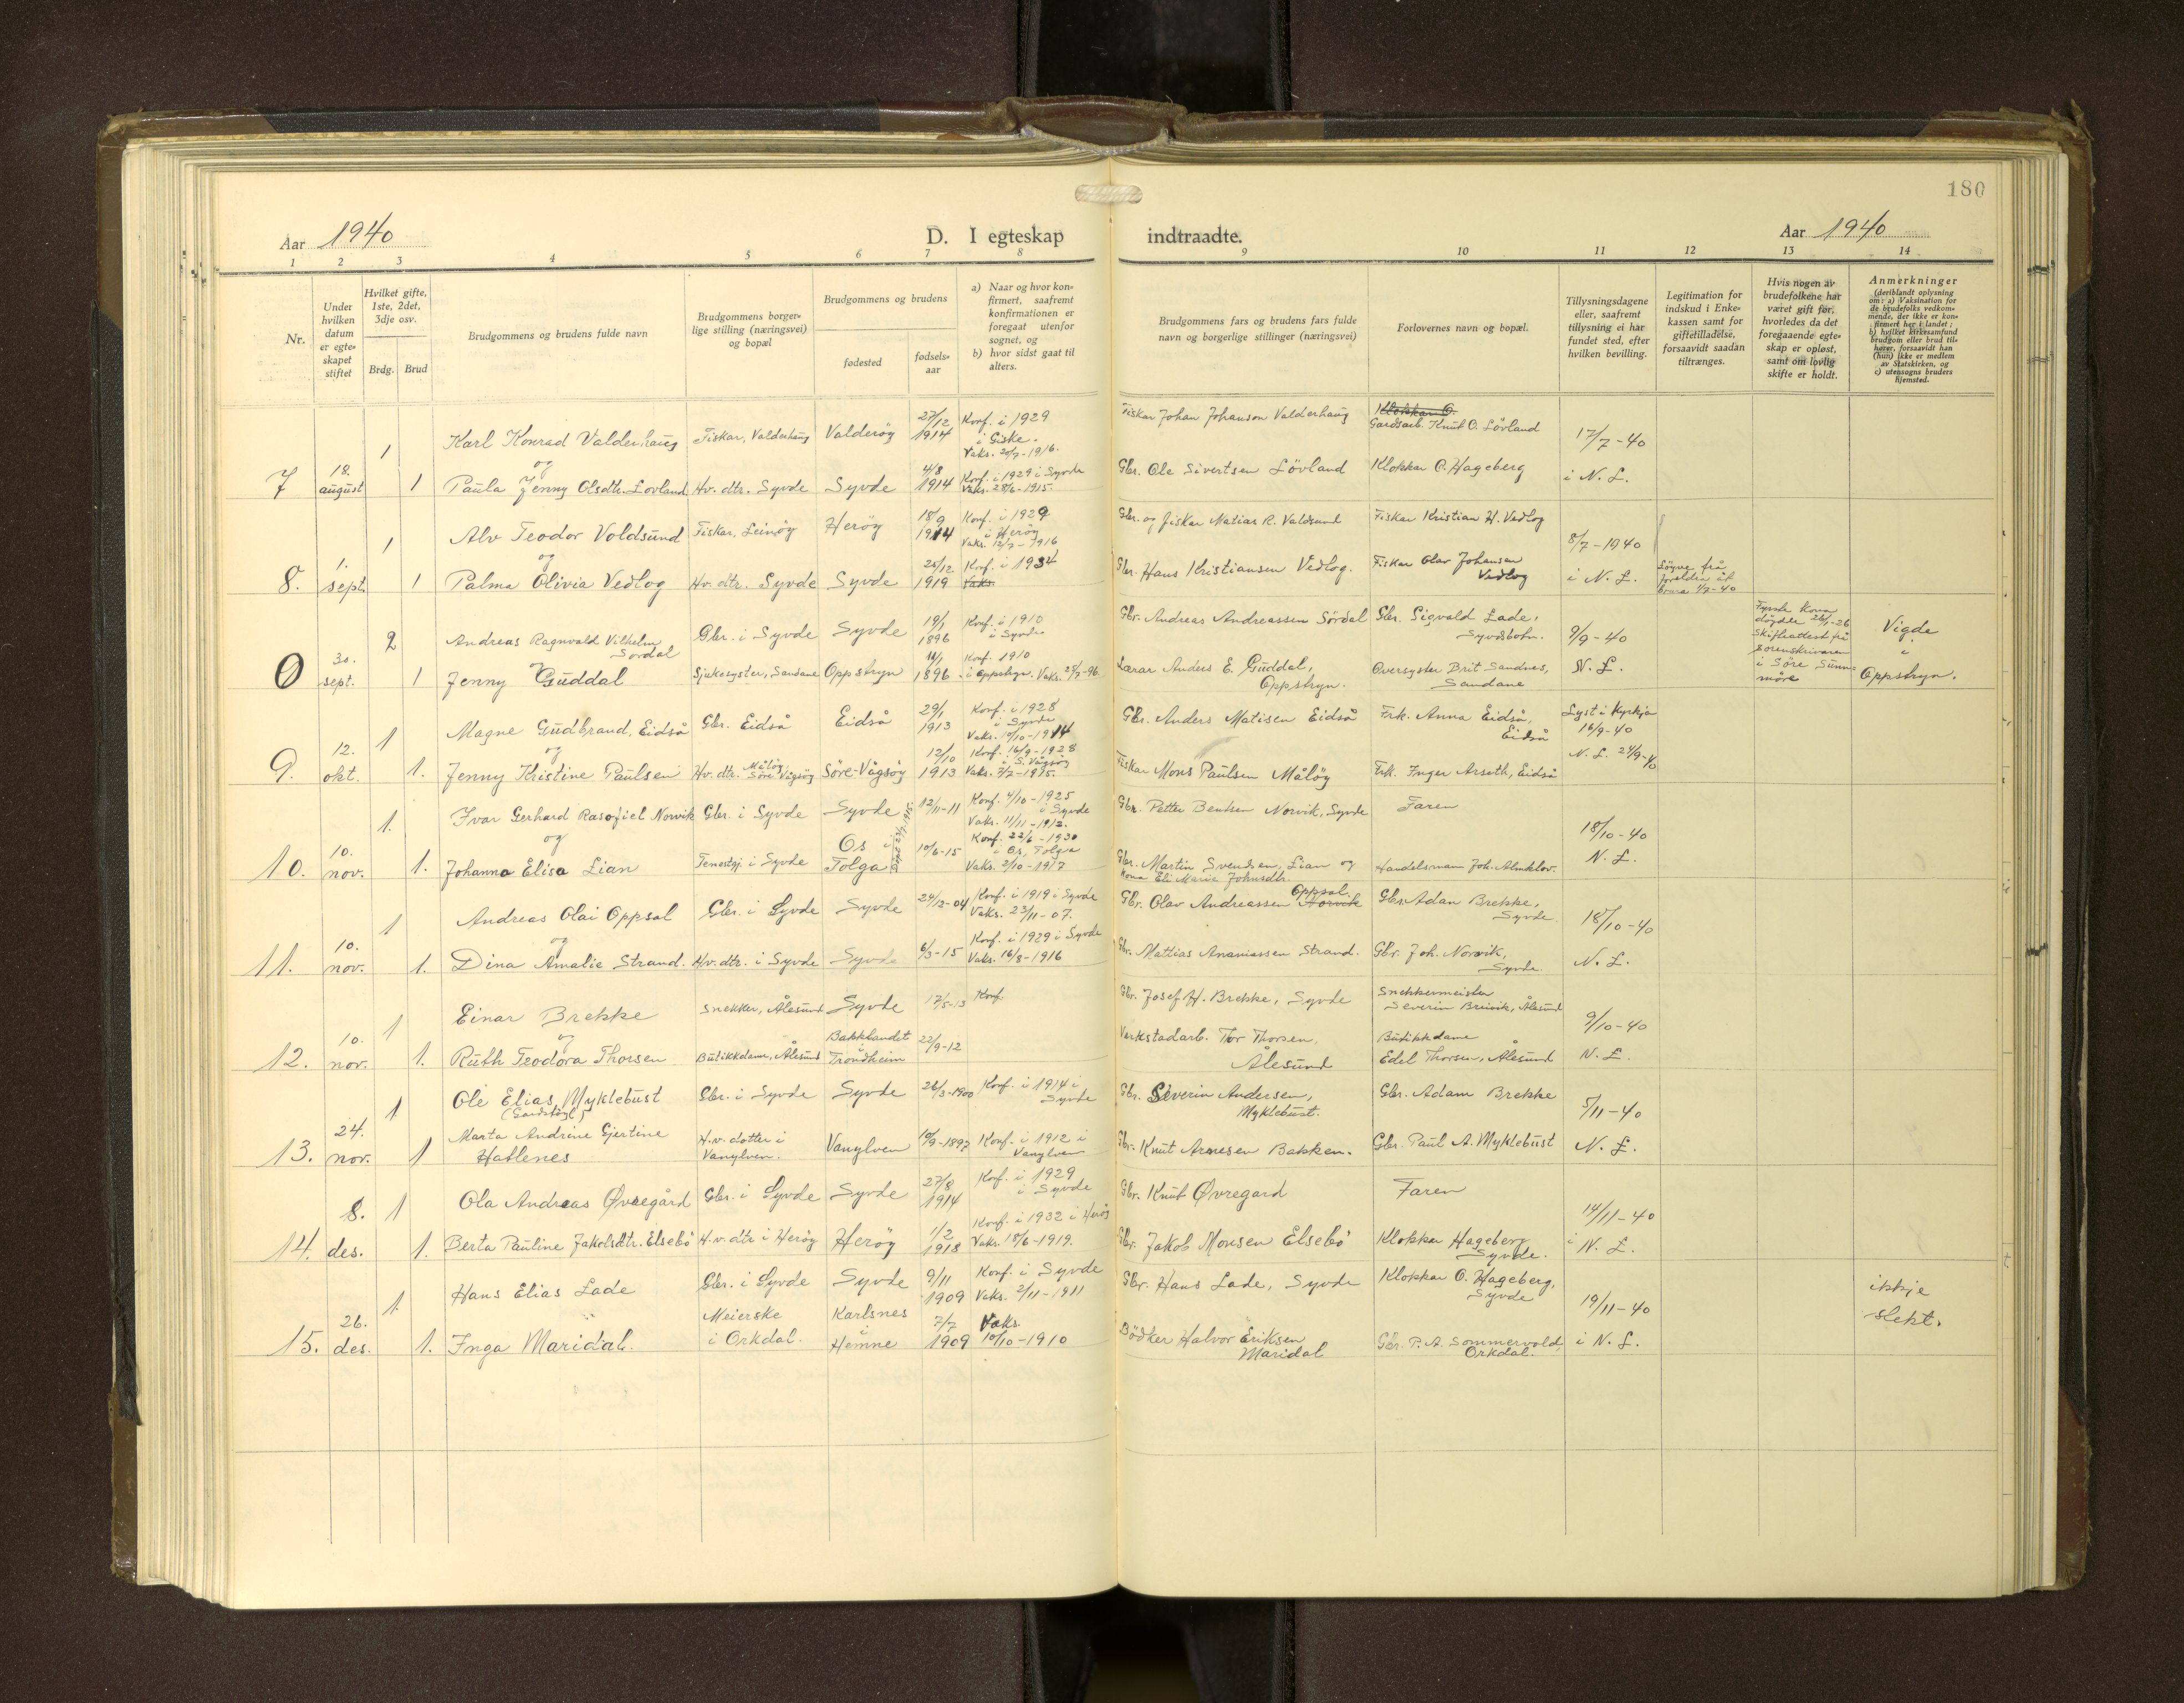 180
Aar 1940
D. I egteskap indtraadte.
Aar 1940
1 2 3 4 5 6 7 8 9 10 11 12 13 14
Nr.
Under hvilken datum er egteskapet stiftet
Hvilket gifte, 1ste, 2det, 3dje osv.
Brdg. Brud
Brudgommens og brudens fulde navn
Brudgommens borgerlige stilling (næringsvei) og bopæl
Brudgommens og brudens
fødested
fødselsaar
a) Naar og hvor konfirmert, saafremt konfirmationen er foregaat utenfor sognet, og
b) hvor sidst gaat til alters.
Brudgommens fars og brudens fars fulde navn og borgerlige stillinger (næringsvei)
Forlovernes navn og bopæl.
Tillysningsdagene eller, saafremt tillysning ei har fundet sted, efter hvilken bevilling.
Legitimation for indskud i Enkekassen samt for giftetilladelse, forsaavidt saadan tiltrænges.
Hvis nogen av brudefolkene har været gift før, hvorledes da det foregaaende egteskap er opløst, samt om lovlig skifte er holdt.
Anmerkninger
(deriblandt oplysning om: a) Vaksination for de brudefolks vedkommende, der ikke er konfirmert her i landet; b) hvilket kirkesamfund brudgom eller brud tilhører, forsaavidt han (hun) ikke er medlem av Statskirken, og c) utensogns bruders hjemsted.
7 18. august
1 Karl Konrad Valderhaug Fiskar, Valderhaug Valderöy 27/12 1914 Konf. i 1929 i Giske. Vaks. 20/7-1916. Fiskar Johan Johanson Valderhaug Klokkar O. Gardsarb. Knut O. Lövland 17/7-40
og
1 Paula Jenny Olsdtr. Lovland Hv. dtr. Syvde Syvde 4/8 1914 Konf. i 1929 i Syvde Vaks. 28/6-1915. Gbr. Ole Sivertsen Lövland Klokkar O. Hageberg i N. L.
8. 1. sept.
1 Alv Teodor Voldsund Fiskar, Leinöy Heröy 18/9 1914 Konf. i 1929 i Heröy Vaks. 12/7-1916 Gbr. og fiskar Matias R. Valdsund Fiskar Kristian H. Vedlog 8/7-1940
og
1 Palma Olivia Vedlog Hv. dtr. Syvde Syvde 25/12 1919 Konf. i 1934 Vaks. Gbr. Hans Kristiansen Vedlog. Fiskar Olav Johansen Vedlog i N. L. Löyve frå foreldra åt brura 1/7-40
0 30. sept.
2 Andreas Ragnvald Vilhelm Sordal Gbr. i Syvde Syvde 19/1 1896 Konf. i 1910 i Syvde Gbr. Andreas Andreassen Sördal Gbr. Sigvald Lade, Syvdsbotn. 9/9-40 Fyrste kona döydde 26/1-26 Skifteattest frå Sorenskrivaren i Söre Sunnmöre Vigde i Oppstryn.
1 Jenny Guddal Sjukesyster, Sandane Oppstryn 1896 Konf. 1910 i Oppstryn. Vaks. 25/7-96 Lærar Anders E. Guddal, Oppstryn. Oversyster Brit Sandnes, Sandane N. L.
9. 12. okt.
1 Magne Gudbrand, Eidså Gbr. Eidså Eidså 29/1 1913 Konf. i 1928 i Syvde Vaks. 10/10-1914 Gbr. Anders Matisen Eidså Frk. Anna Eidså, Eidså Lyst i Kyrkja 16/9-40
og
1. Jenny Kristine Paulsen Hv. dtr. Målöy, Söre-Vågsöy Söre-Vågsöy 12/10 1913 Konf. 16/9-1928 i S. Vågsöy Vaks. 7/7-1915. Fiskar Mons Paulsen Målöy Frk. Inger Arseth, Eidså N. L. 24/9-40
10. 10. nov.
1. Ivar Gerhard Rasofiel Norvik Gbr. i Syvde Syvde 12/11-11 Konf. 4/10-1925 i Syvde Vaks. 11/11-1912. Gbr. Petter Bentsen Norvik, Syvde Faren 18/10-40
og
1. Johanna Elisa Lian Tenestgj. i Syvde Os i Tolga 10/6-15 Konf. 22/6-1930 i Os, Tolga Vaks. 2/10-1917 Gbr. Martin Svendsen, Lian og kona Eli Marie Johnsdtr. Handelsmann Joh. Almklov. N. L.
11. 10. nov.
1 Andreas Olai Oppsal Gbr. i Syvde Syvde 24/12-04 Konf. i 1919 i Syvde Vaks. 23/11-07. Gbr. Olav Andreassen Norvik Oppsal. Gbr. Adan Brekke, Syvde 18/10-40
og
1. Dina Amalie Strand. Hv. dtr. i Syvde Syvde 6/3-15 Konf. i 1929 i Syvde Vaks. 16/8-1916 Gbr. Mathias Ananiassen Strand. Gbr. Joh. Norvik, Syvde. N. L.
12. 10. nov.
1 Einar Brekke Snekker, Ålesund Syvde 17/5-13 Konf Gbr. Josef H. Brekke, Syvde Snekkermeister Severin Breivik, Ålesund 9/10-40
og
1. Ruth Teodora Thorsen Butikkdame, Ålesund Bakklandet i Trondheim 22/9-12 Verkstadarb. Thor Thorsen, Ålesund Butikkdame Edel Thorsen, Ålesund N. L.
13. 24. nov.
1 Ole Elias Myklebust Gbr. i Syvde Syvde 26/3-1900 Konf. i 1914 i Syvde Gbr. Severin Andersen, Myklebust. Gbr. Adam Brekke 5/11-40
1 Marta Andrine Gjertine Hatlenes H.v. dotter i Vanylven. Vanylven 10/9-1897 Konf. i 1912 i Vanylven Gbr. Knut Arnesen Bakken. Gbr. Paul A. Myklebust N. L.
14. 8. des.
1 Ola Andreas Øvregård Gbr. i Syvde Syvde 27/8 1914 Konf. i 1929 i Syvde Gbr. Knut Øvregard Faren 14/11-40
1. Berta Pauline Jakobsdtr. Elsebö H.v. dtr i Heröy Heröy 1/2 1918 Konf. i 1932 i Heröy Vaks. 18/6-1919. Gbr. Jakob Monsen Elsebö Klokkar Hageberg Syvde. i N. L.
15. 26. des.
1 Hans Elias Lade Gbr. i Syvde Syvde 9/11 1909 Konf. i Syvde Vaks. 2/11-1911 Gbr. Hans Lade, Syvde Klokkar O. Hageberg, Syvde 19/11-40 ikkje slekt.
1. Inga Maridal. Meierske i Orkdal. Karlsnes i Hemne 7/7 1909 Vaks. 10/10-1910 Bödker Halvor Eriksen Maridal Gbr. P. A. Sommervold, Orkdal. i N. L.